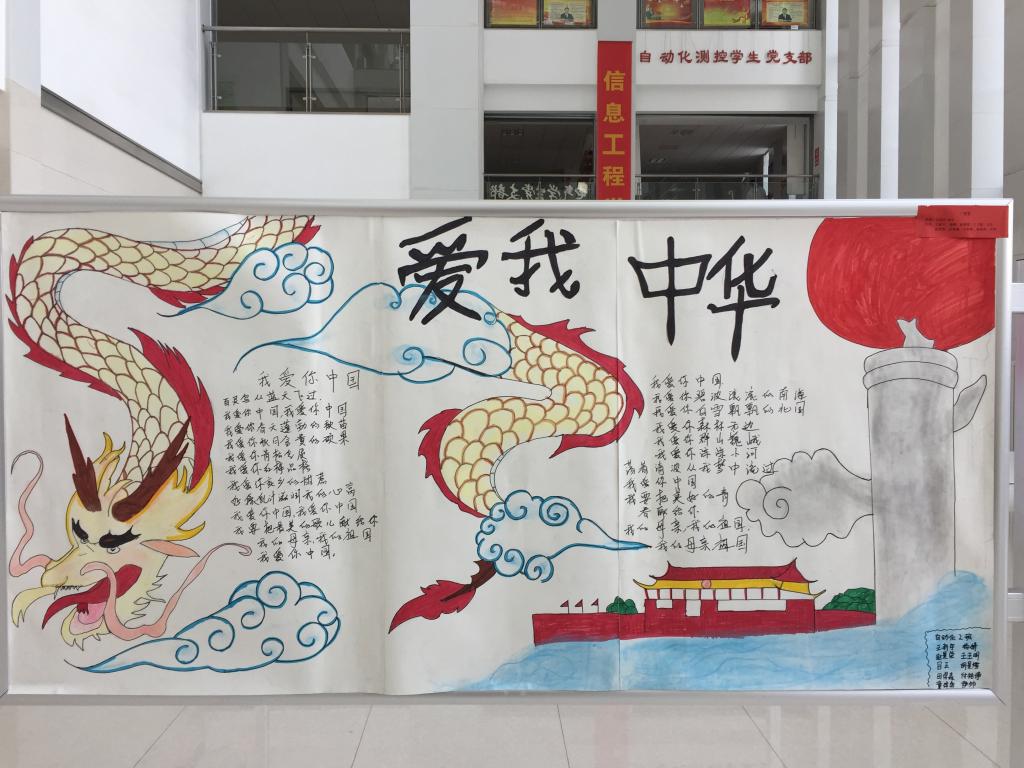 自动化测控学生党支部
信息工程
爱我中华
我爱你中国
百灵鸟从蓝天飞过
我爱你中国,我爱你中国
我爱你春天蓬勃的秧苗
我爱你秋日金黄的硕果
我爱你青松气质
我爱你红梅品格
我爱你家乡的甜蔗
好像乳汁滋润我的心窝
我爱你中国,我爱你中国
我要把最美的歌儿献给你
我的母亲,我的祖国
我爱你中国。
我爱你中国
我爱你碧波滚滚的南海
我爱你白雪飘飘的北国
我爱你森林无边
我爱你群山巍峨
我爱你淙淙小河
荡着清波从我梦中流过
我爱你中国
我要把美好的青
春献给你
我的母亲,我的祖国.
我的母亲祖国
自动化